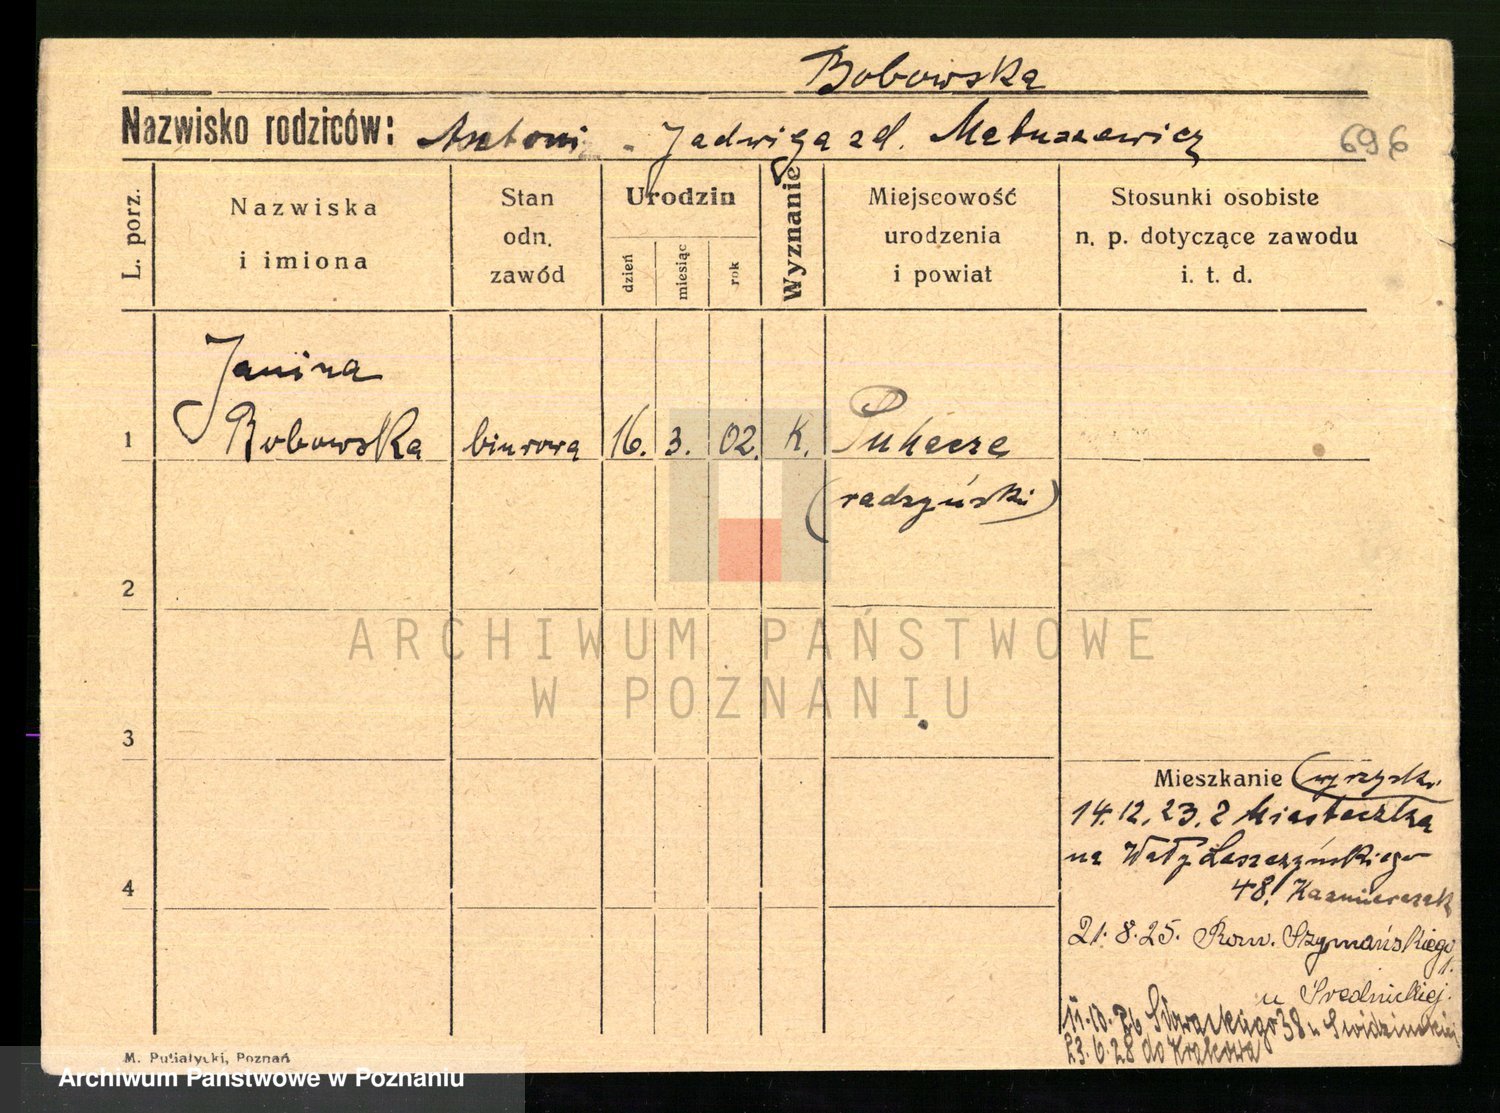 Bobowska
Nazwisko rodziców: Antoni - Jadwiga zd. Matuszewicz 696
L. porz.
Nazwiska
i imiona
Stan
odn.
zawód
Urodzin
dzień
miesiąc
rok
Wyznanie
Miejscowość
urodzenia
i powiat
Stosunki osobiste
n. p. dotyczące zawodu
i. t. d.
Janina
1 Bobowska biurowa 16. 3. 02. K.
(radzyński)
2
ARCHIWUM PAŃSTWOWE
W POZNANIU
3
Mieszkanie (wyrzyski
14.12.23. z Miasteczka
na Wały Leszczyńskiego
48! Kazmierczak
21.8.25. Rom. Szymańskiego
1.
u Srednickiej.
4
11.10.26 Słowackiego 38 u
23.6.28 do Krakowa
M. Putiatycki, Poznań
Archiwum Państwowe w Poznaniu